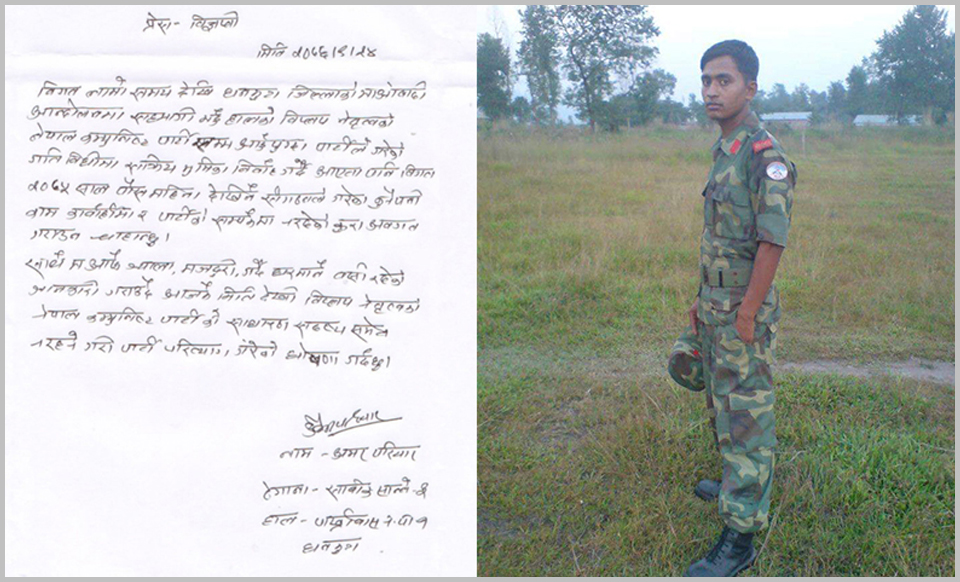 प्रेस- विज्ञप्ती
मिति २०७६/९/२४
विगत लामो समय देखि धनकुटा जिल्लाको माओवादी
आन्दोलनमा सहभागी भई हालको विप्लप नेतृत्वको
नेपाल कम्युनिष्ट पार्टी सम्म आई पुग्दा पार्टीले गरेको
गति विधीमा सक्रिय भुमिका निर्वाह गर्दै आएता पनि विगत
२०७५ साल पौस महिना देखिनै संगठनले गरेको कुनैपनी
काम कार्वाहीमा र पार्टीको सम्पर्कमा नरहेको कुरा अवगत
गराउन चाहान्छु।
साथै म आफै ज्याला, मजदुरी, गर्दै घरमानै बसी रहेको
जानकारी गराउँदै आजकै मिति देखी विप्लप नेतृत्वको
नेपाल कम्युनिष्ट पार्टी को साधारण सदस्य समेत
नरहने गरी पार्टी परित्याग गरेको घोषणा गर्दछु।
नाम - अमर परियार
ठेगाना - साविक सान्ने-६
हाल- पाख्रिवास न.पा
धनकुटा